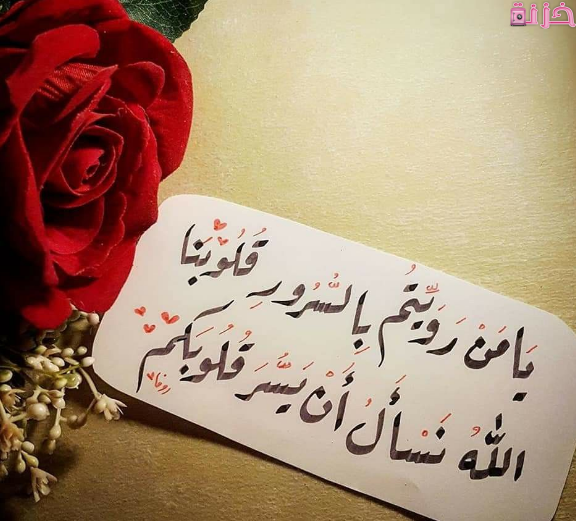 خزنة
يَا مَنْ رَوَيّتُم بِالسُّرُورِ قُلُوبَنَا
اللهُ نَسْأَلُ أَنْ يَسَّرَ قُلُوبَكُم